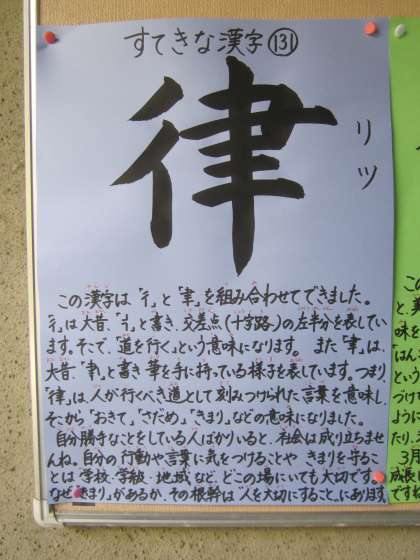 すてきな漢字 131
律
リツ
この漢字は「彳」と「聿」を組み合わせてできました。
「彳」は大昔、「彳」と書き、交差点(十字路)の左半分を表してい
ます。そこで、「道を行く」という意味になります。また「聿」は、
大昔、「聿」と書き筆を手に持っている様子を表しています。つまり
「律」は、人が行くべき道として刻みつけられた言葉を意味し、
そこから「おきて」、「さだめ」、「きまり」などの意味になりました。
自分勝手なことをしている人ばかりいると、社会は成り立ちませ
んね。自分の行動や言葉に気をつけることや きまりを守るこ
とは 学校、学級、地域など、どこの場にいても大切です。
なぜ「きまり」があるか、その根幹は「人を大切にすること」にあります。